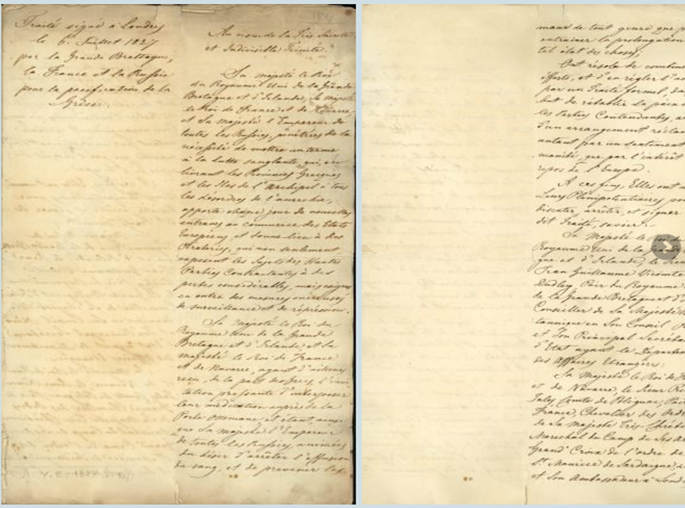 Traité signé à Londres
le 6. Juillet 1827
par la Grande Bretagne,
la France et la Russie
pour la pacification de la
Grèce.
Au nom de la Très Sainte
et Indivisible Trinité.
Sa Majesté le Roi
du Royaume Uni de la Grande
Bretagne et d'Irlande, Sa Majesté
le Roi de France et de Navarre,
et Sa Majesté l'Empereur de
toutes les Russies, pénétrées de la
nécessité de mettre un terme
à la lutte sanglante, qui, en
livrant les Provinces Grecques
et les Iles de l'Archipel à tous
les désordres de l'anarchie,
apporte chaque jour de nouvelles
entraves au commerce des Etats
Européens et donne lieu à des
Pirateries, qui non seulement
exposent les Sujets des Hautes
Parties Contractantes à des
pertes considérables, mais exigent
en outre des mesures onéreuses
de surveillance et de répression.
Sa Majesté le Roi du
Royaume Uni de la Grande
Bretagne et d'Irlande et Sa
Majesté le Roi de France
et de Navarre, ayant d'ailleurs
reçu, de la part des Grecs, l'invi
tation pressante d'interposer
leur médiation auprès de la
Porte Ottomane et étant, ainsi
que Sa Majesté l'Empereur
de toutes les Russies, animées
du désir d'arrêter l'effusion
du sang, et de prévenir les
maux de tout genre que p
entrainer la prolongation
tel état de choses,
Ont résolu de combine
efforts, et d'en régler l'ac
par un Traité formel, da
but de rétablir la paix e
les Parties Contendantes, au
d'un arrangement réclam
autant par un sentiment
manité, que par l'intérêt
repos de l'Europe.
A ces fins, Elles ont n
Leurs Plénipotentiaires pou
discuter, arrêter, et signer
dit Traité, savoir:
Sa Majesté le
Royaume Uni de la Grande
gne et d'Irlande, le
Jean Guillaume Vicomte
Dudley Pair du Royaume
de la Grande Bretagne et d'
Conseiller de Sa Majesté
tannique en Son Conseil P
et Son Principal Secrétai
d'Etat ayant le Départem
des Affaires Etrangères:
Sa Majesté le Roi de F
et de Navarre, le Sieur
Jules, Comte de Polignac, Pair
France, Chevalier des Ordr
de Sa Majesté Très Chréti
Maréchal de Camp de Ses Ar
Grand' Croix de l'ordre de
St. Maurice de Sardaigne,
et Son Ambassadeur à Lond